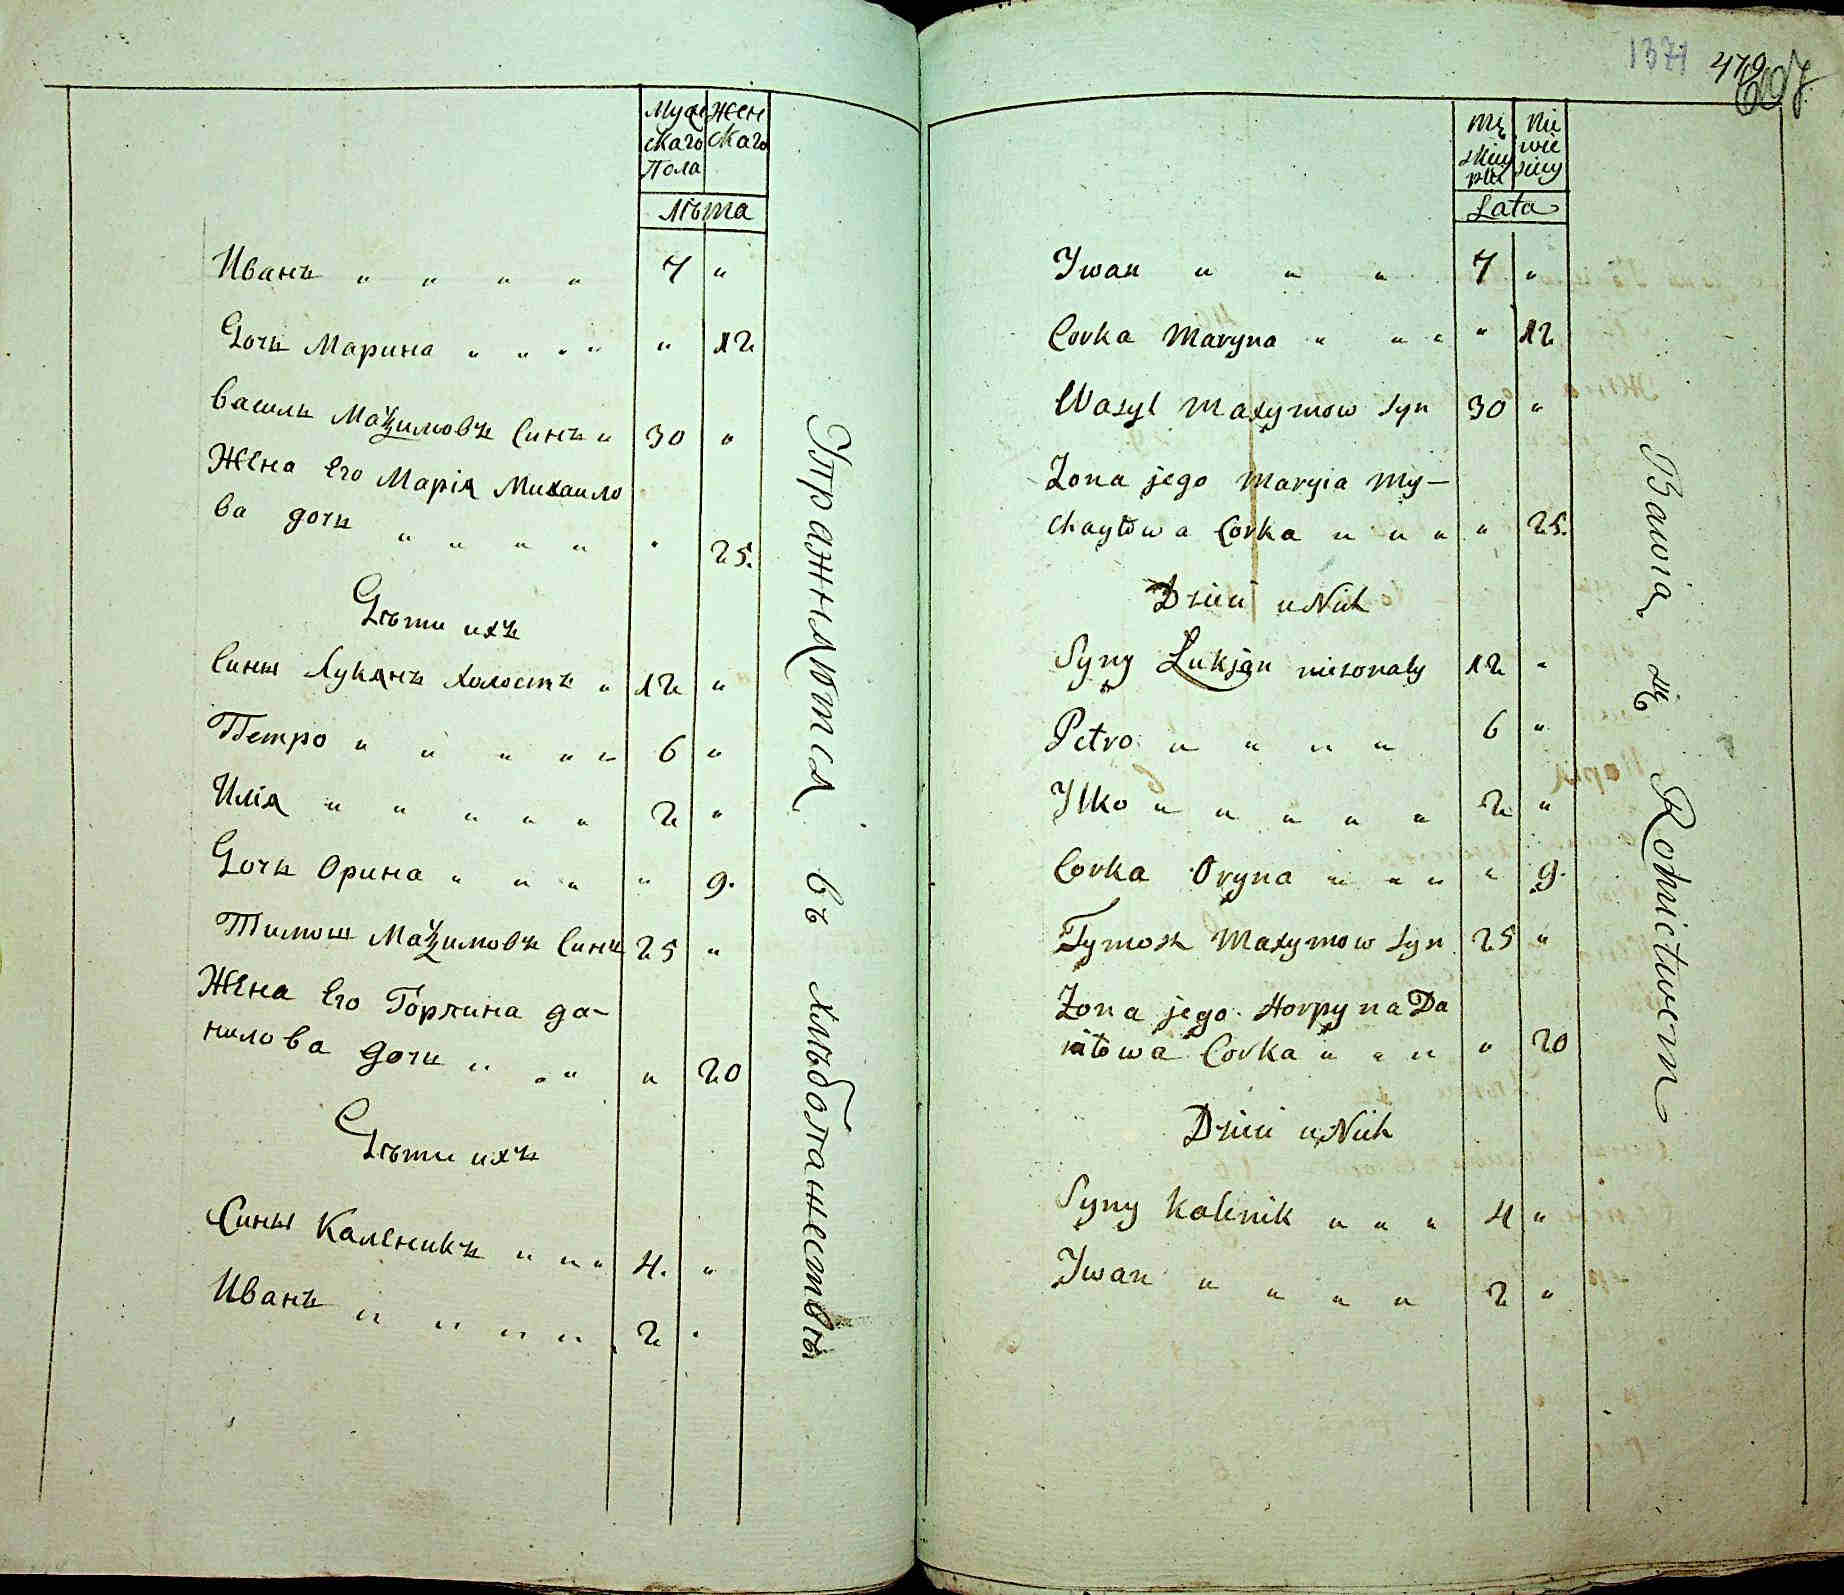 Муж Жен
скаго скаго
Пола
Лѣта
Иванъ " " " " 7 "
Дочь Марина " " " " " 12
Василь Маѯимовъ Синъ " 30 "
Жена Его Марія Михаило
ва дочь " " " " " 25.
Дѣти ихъ
Сины Лукянъ Холостъ " 12 "
Петро " " " " " 6 "
Илія " " " " " 2 "
Дочь Орина " " " " 9.
Тимош Маѯимовъ Синъ 25 "
Жена Его Горпина да-
нилова дочь " " " " 20
Дѣти ихъ
Сины Каленикъ " " " 4. "
Иванъ " " " " 2 "
Упражняются въ хлѣбопажествѣ
1371 479
Mę Nie
skiey wie
płci sciey
Lata
Jwan " " " 7 "
Corka Maryna " " " " 12
Wasyl Maxymow Syn 30 "
Zona jego Maryia My-
chayłowa Corka " " " " 25.
Dzieci u Nich
Syny Łukjan niezonaty 12 "
Petro " " " " 6 "
Jlko " " " " " 2 "
Corka Oryna " " " " 9.
Tymosz Maxymow Syn 25 "
Zona jego Horpyna Da
niłowa Corka " " " " 20
Dzieci u Nich
Syny Kalenik " " " 4 "
Jwan " " " " 2 "
Bawią się Rolnictwem